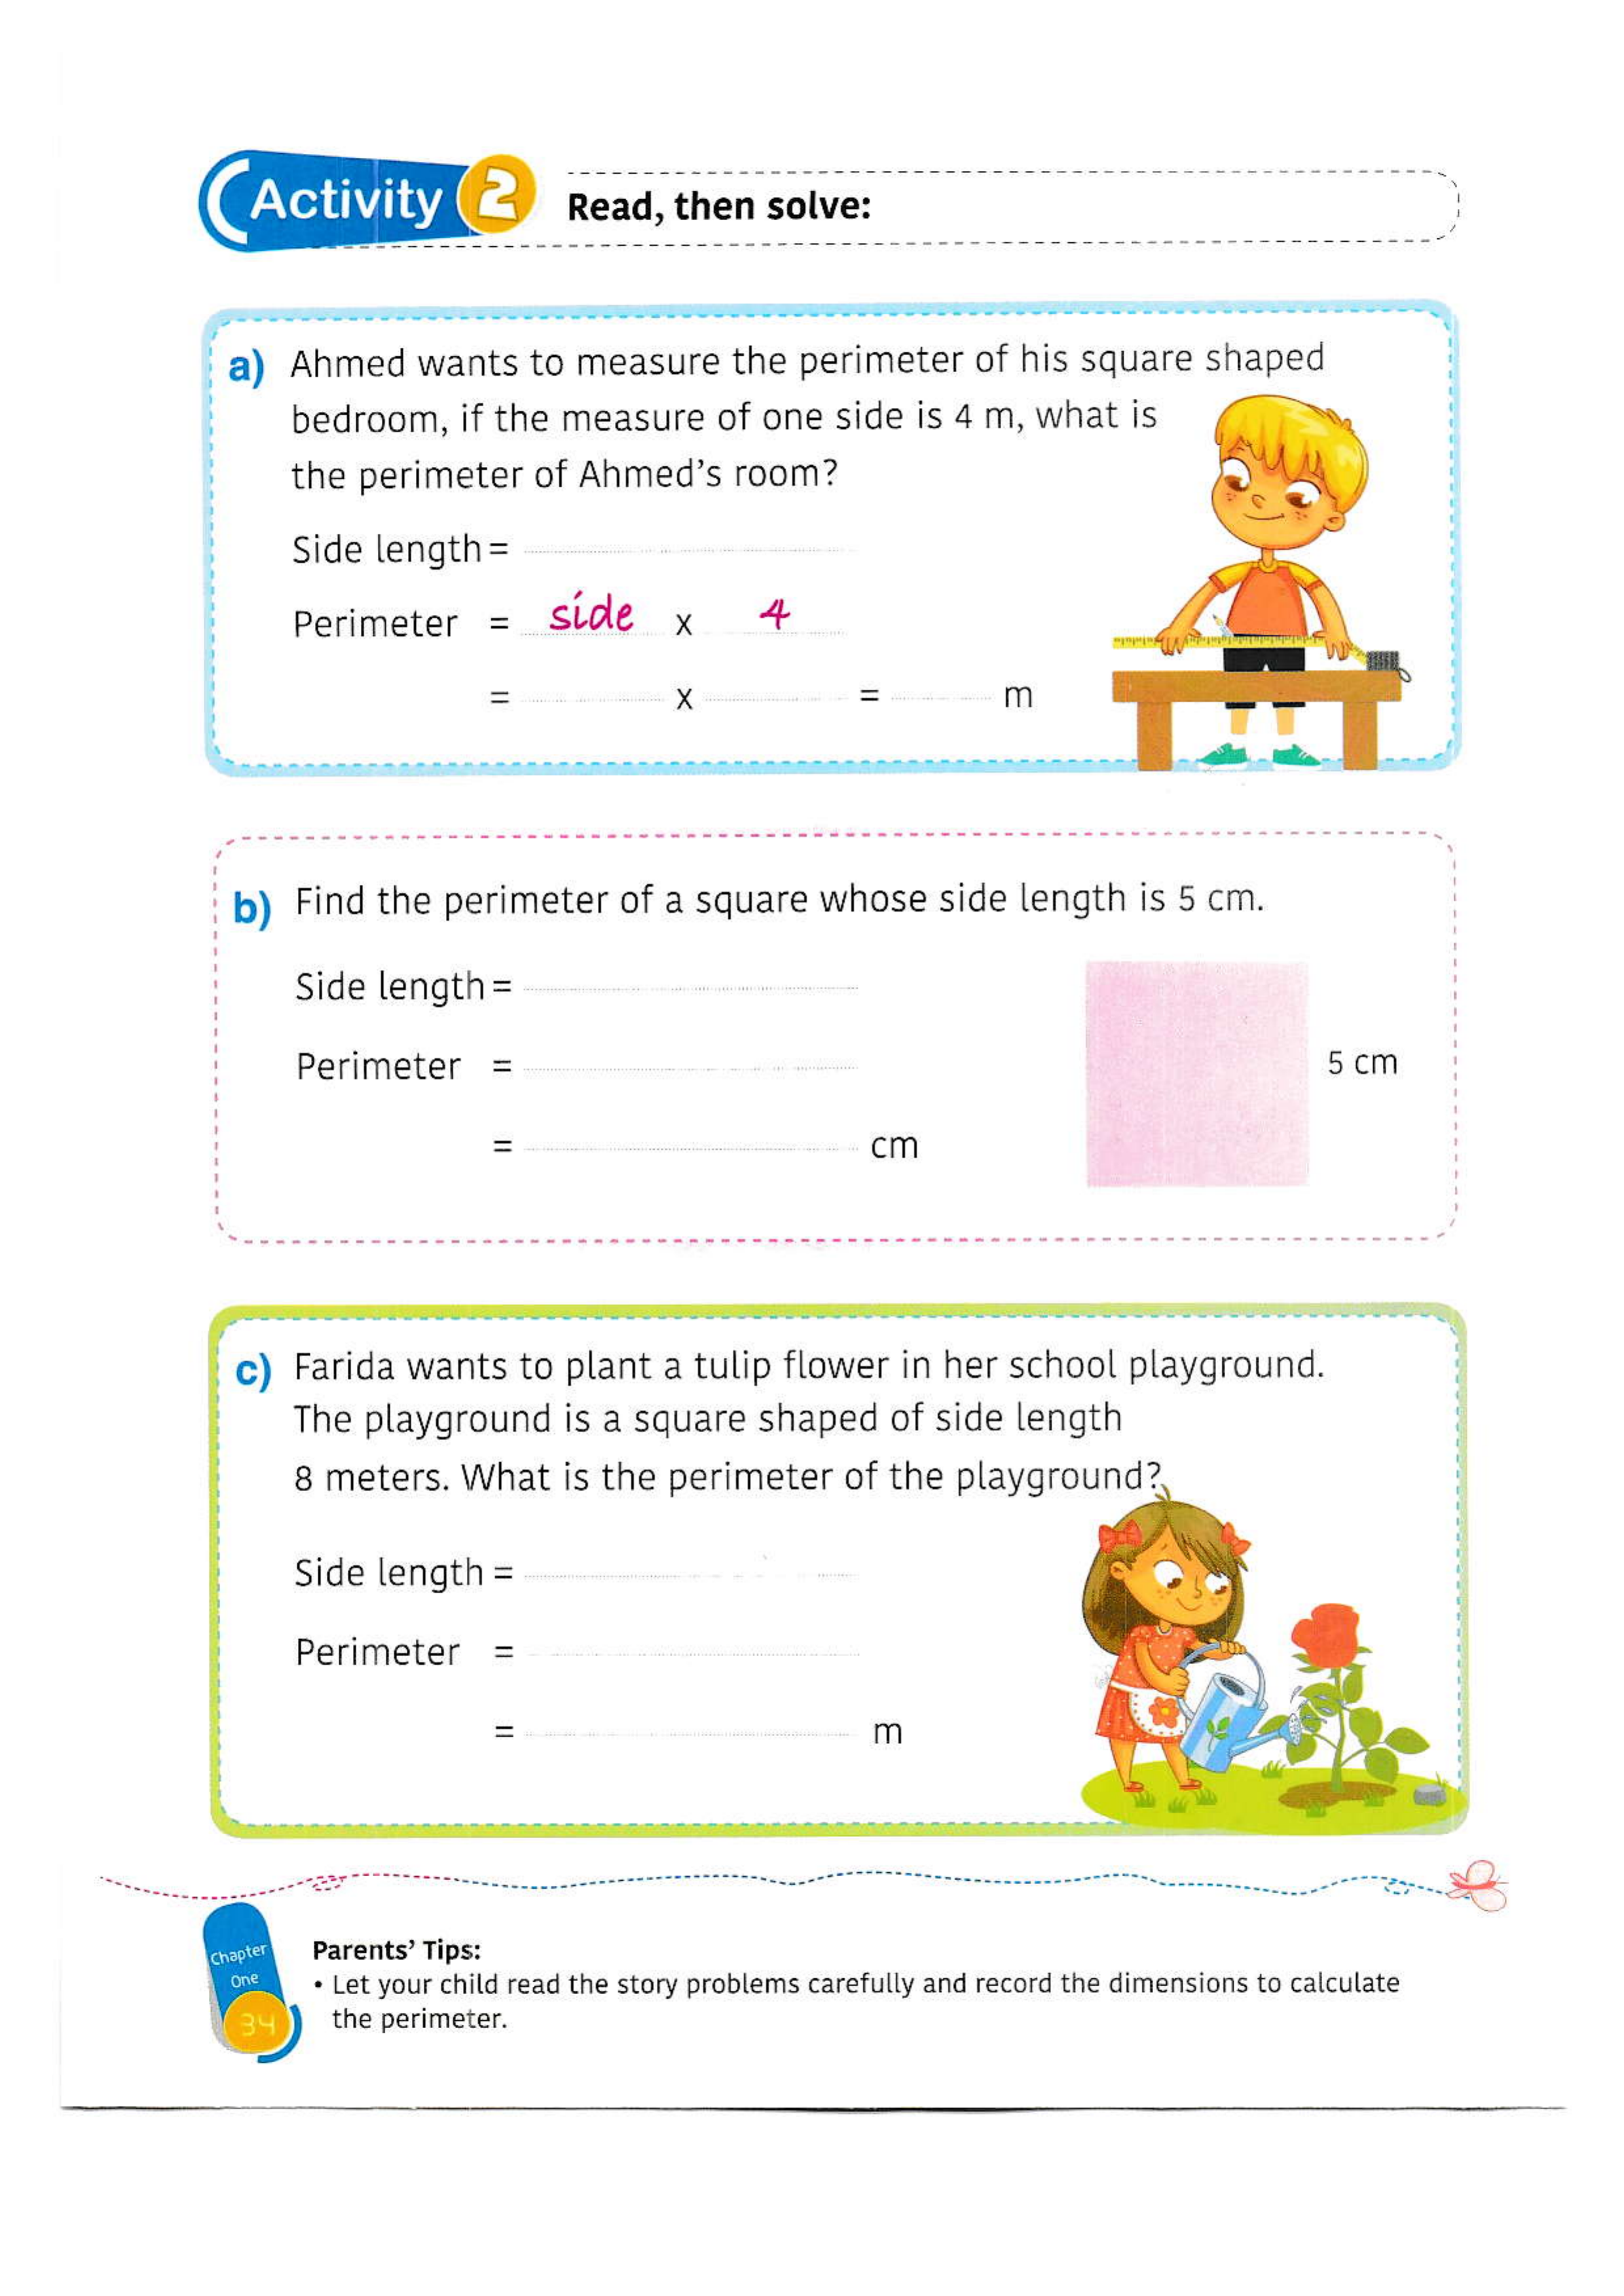 Activity 2 Read, then solve:
a) Ahmed wants to measure the perimeter of his square shaped
bedroom, if the measure of one side is 4 m, what is
the perimeter of Ahmed's room?
Side length =
Perimeter = side x 4
= x = m
b) Find the perimeter of a square whose side length is 5 cm.
Side length =
Perimeter =
5 cm
= cm
c) Farida wants to plant a tulip flower in her school playground.
The playground is a square shaped of side length
8 meters. What is the perimeter of the playground?
Side length =
Perimeter =
= m
Chapter
One
34
Parents' Tips:
• Let your child read the story problems carefully and record the dimensions to calculate
the perimeter.